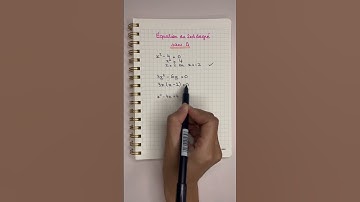 Équation du 2nd degré
sans Δ
x² - 4 = 0
x² = 4
x = 2 ou x = -2 ✓
3x² - 6x = 0
3x (x - 2) = 0